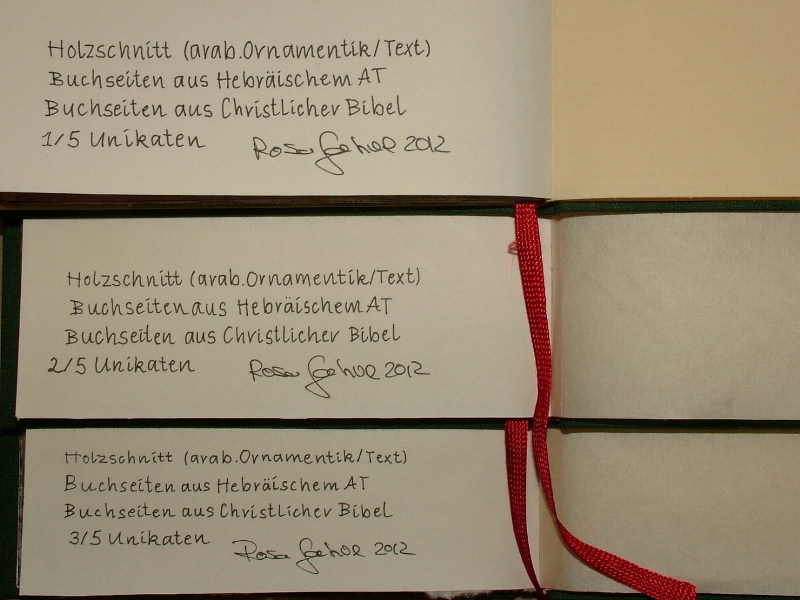 Holzschnitt (arab.Ornamentik/Text)
Buchseiten aus Hebräischem AT
Buchseiten aus Christlicher Bibel
1/5 Unikaten Rosa Gehoe 2012
Holzschnitt (arab.Ornamentik/Text)
Buchseiten aus Hebräischem AT
Buchseiten aus Christlicher Bibel
2/5 Unikaten Rosa 2012
Holzschnitt (arab.Ornamentik/Text)
Buchseiten aus Hebräischem AT
Buchseiten aus Christlicher Bibel
3/5 Unikaten Rosa 2012